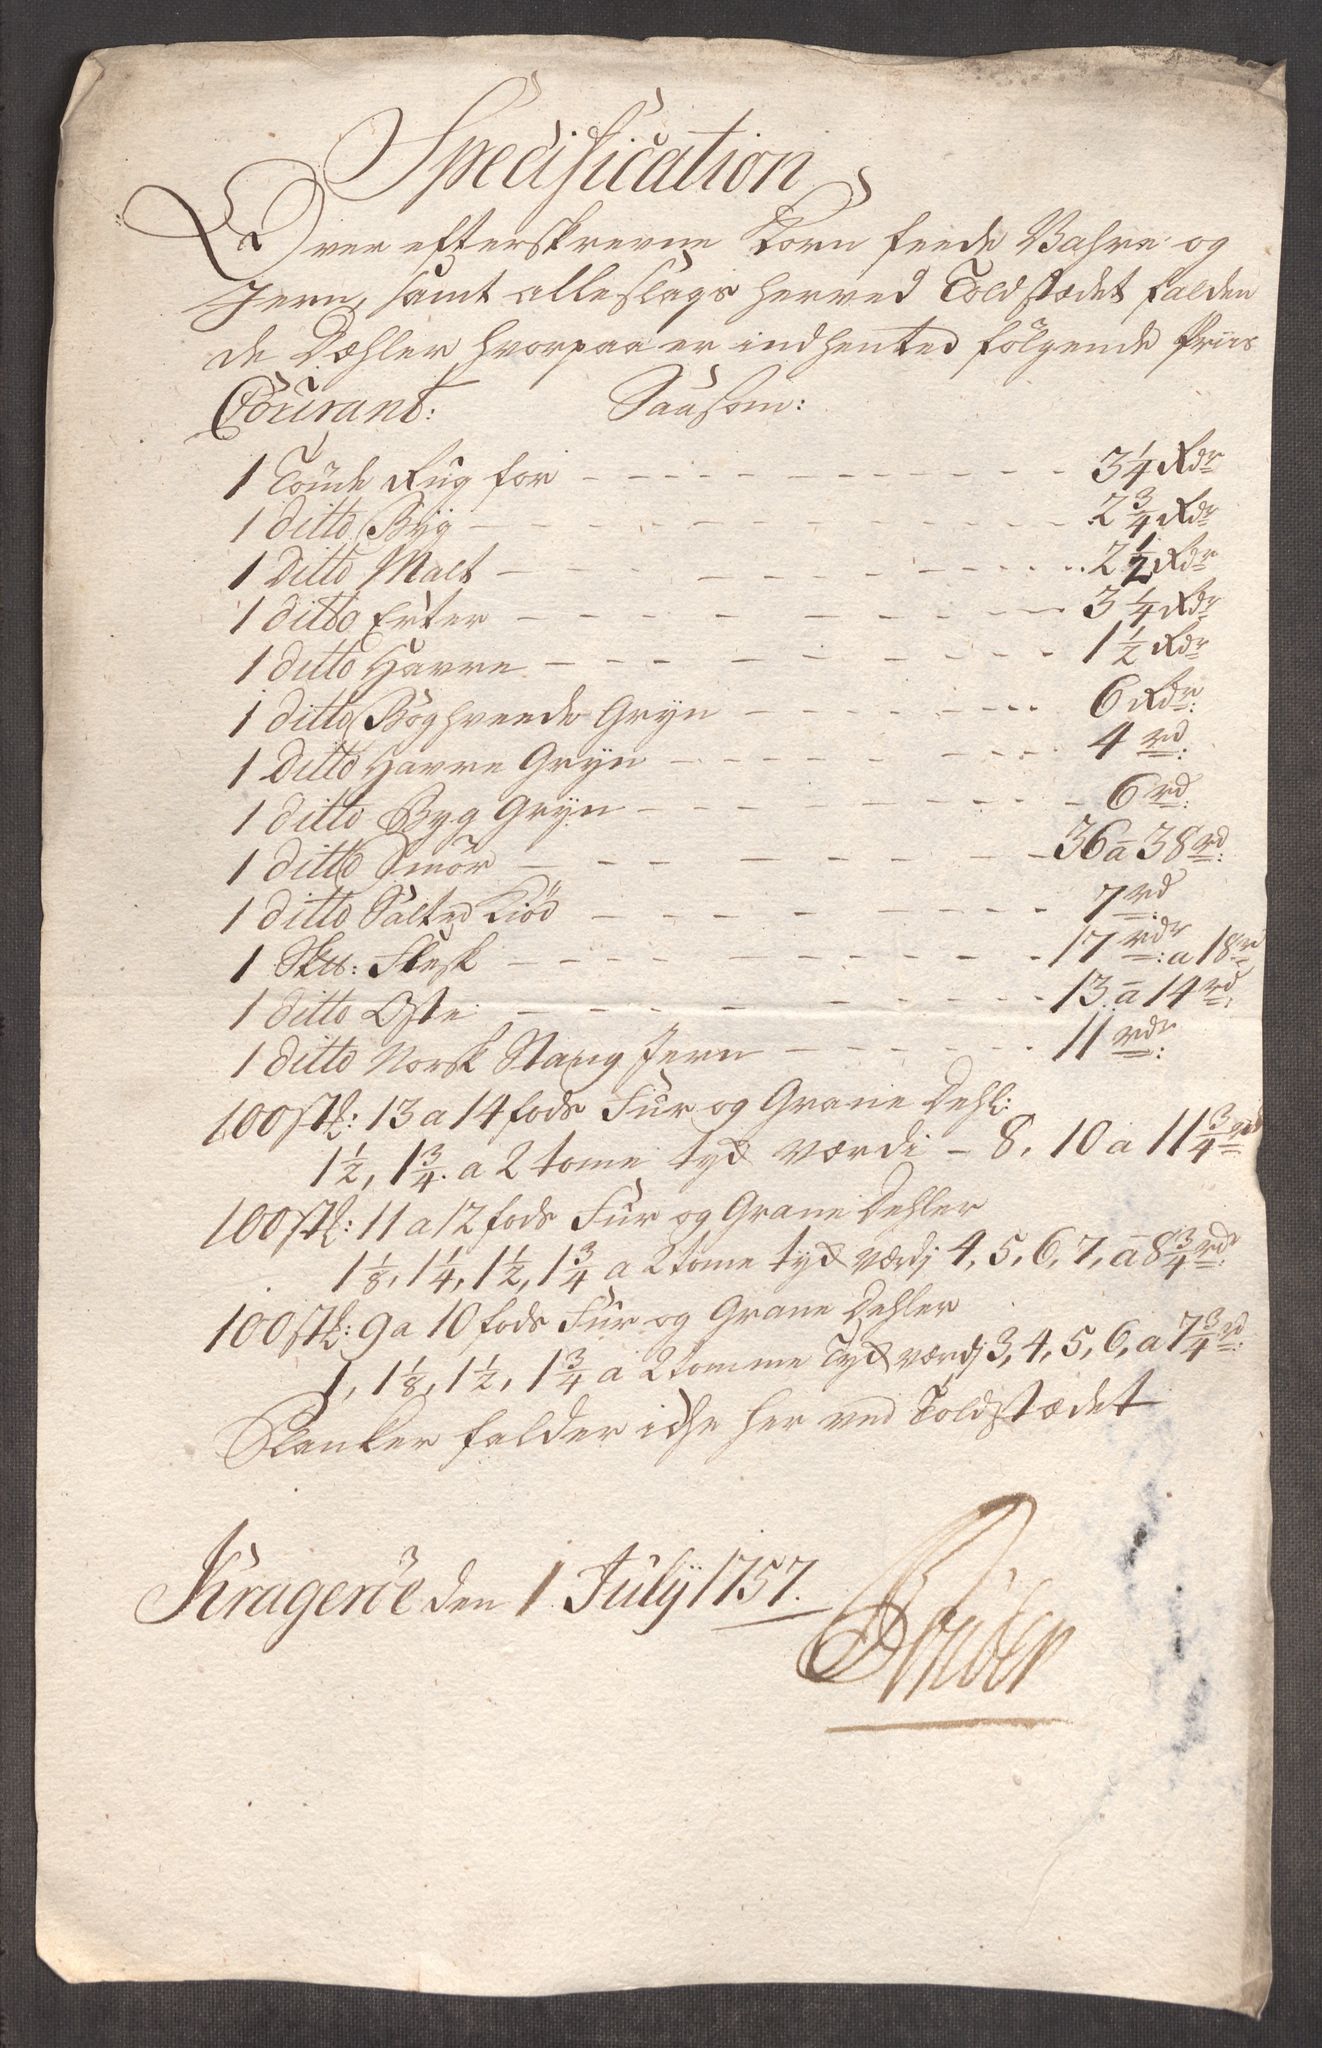 Specification
Over efterskrevne Korn feede Vahre og
Jern, samt alleslags herved Toldstædet falden
de Dæhler hvorpaa er indhented følgende Priis
Courant: Saasom:
1 Tønde Rug for - - - - - - - - 3 1/4 Rdr
1 ditto Byg - - - - - - - - 2 3/4 Rdr
1 Ditto Malt - - - - - - - - 2 1/2 Rdr
1 ditto Erter - - - - - - - - 3 1/4 Rdr
1 ditto Havre - - - - - - - - 1 1/2 Rdr
1 ditto Boghveede Gryn - - - - - - 6 Rdr:
1 Ditto Havre Gryn - - - - - - - 4 rd:
1 ditto Byg Gryn - - - - - - - 6 rd:
1 ditto Smør - - - - - - - - 36 a 38 rd:
1 ditto Salted Kiød - - - - - - - 7 rd
1 Sk℔: Flesk - - - - - - - - 17 rdr: a 18 rd
1 ditto Oste - - - - - - - - 13 a 14 rd:
1 ditto Norsk Stang Jern - - - - - 11 rdr:
100 stk: 13 a 14 fods Fur og Grane Dehl:
1 1/2, 1 3/4. a 2 tome tyk værdi - 8, 10 a 11 3/4 rd
100 stk: 11 a 12 fods Fur og Grane Dehler
1 1/8, 1 1/4, 1 1/2, 1 3/4 a 2 tome tyk værdj 4, 5, 6, 7, a 8 3/4 rdr:
100 stk: 9 a 10 fods Fur og Grane Dehler
1, 1 1/8, 1 1/2, 1 3/4 a 2 tomme Tyk værdj 3, 4, 5, 6, a 7 3/4 rd:
Planker falder icke her ved Toldstædet
Kragerøe den 1. Julÿ 1757.